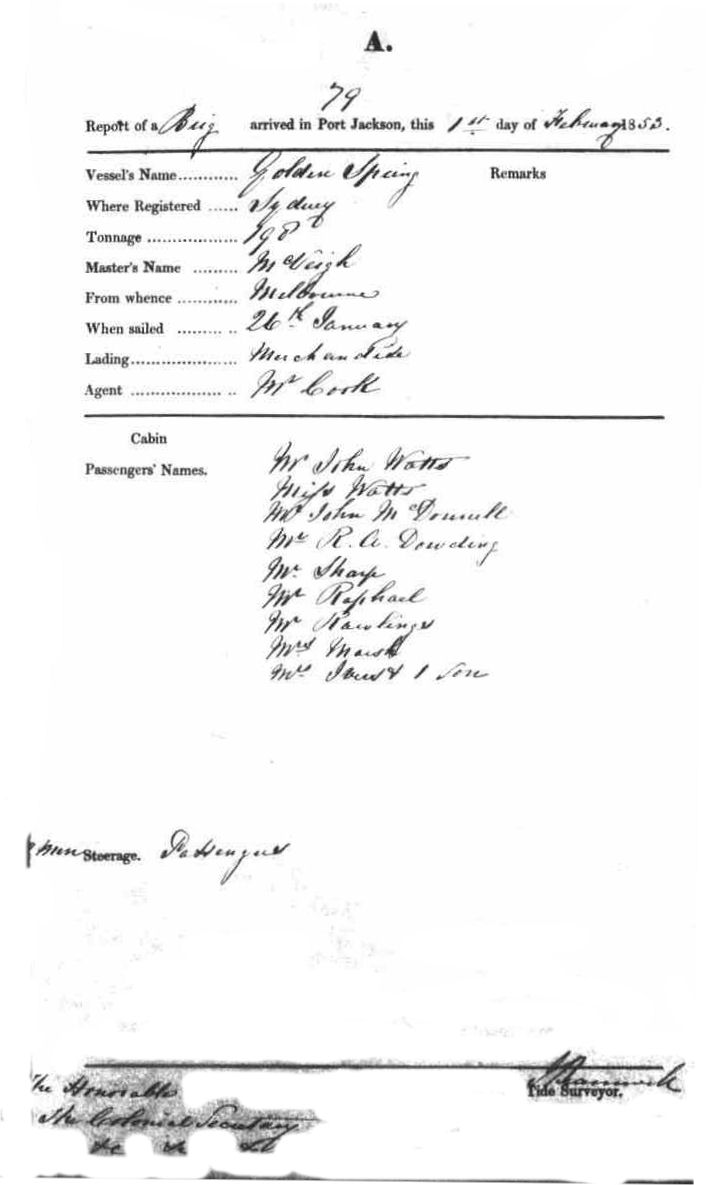 A.
79
Report of a Brig arrived in Port Jackson, this 1st day of February 1853.
Vessel's Name............ Golden Spring Remarks
Where Registered ...... Sydney
Tonnage .................. 198
Master's Name ......... McVeigh
From whence ............ Melbourne
When sailed ......... .. 26th January
Lading..................... Merchandise
Agent ................. .. Mr Cook
Cabin
Passengers' Names.
Mr John Watts
Miss Watts
Mr John McDonnell
Mr R. A. Dowding
Mr Sharp
Mr Raphael
Mr Rawlings
Mrs Marsh
Mrs 1 Son
men Steerage. Passengers
The Honorable
The Colonial Secretary
&c &c &c
Tide Surveyor.